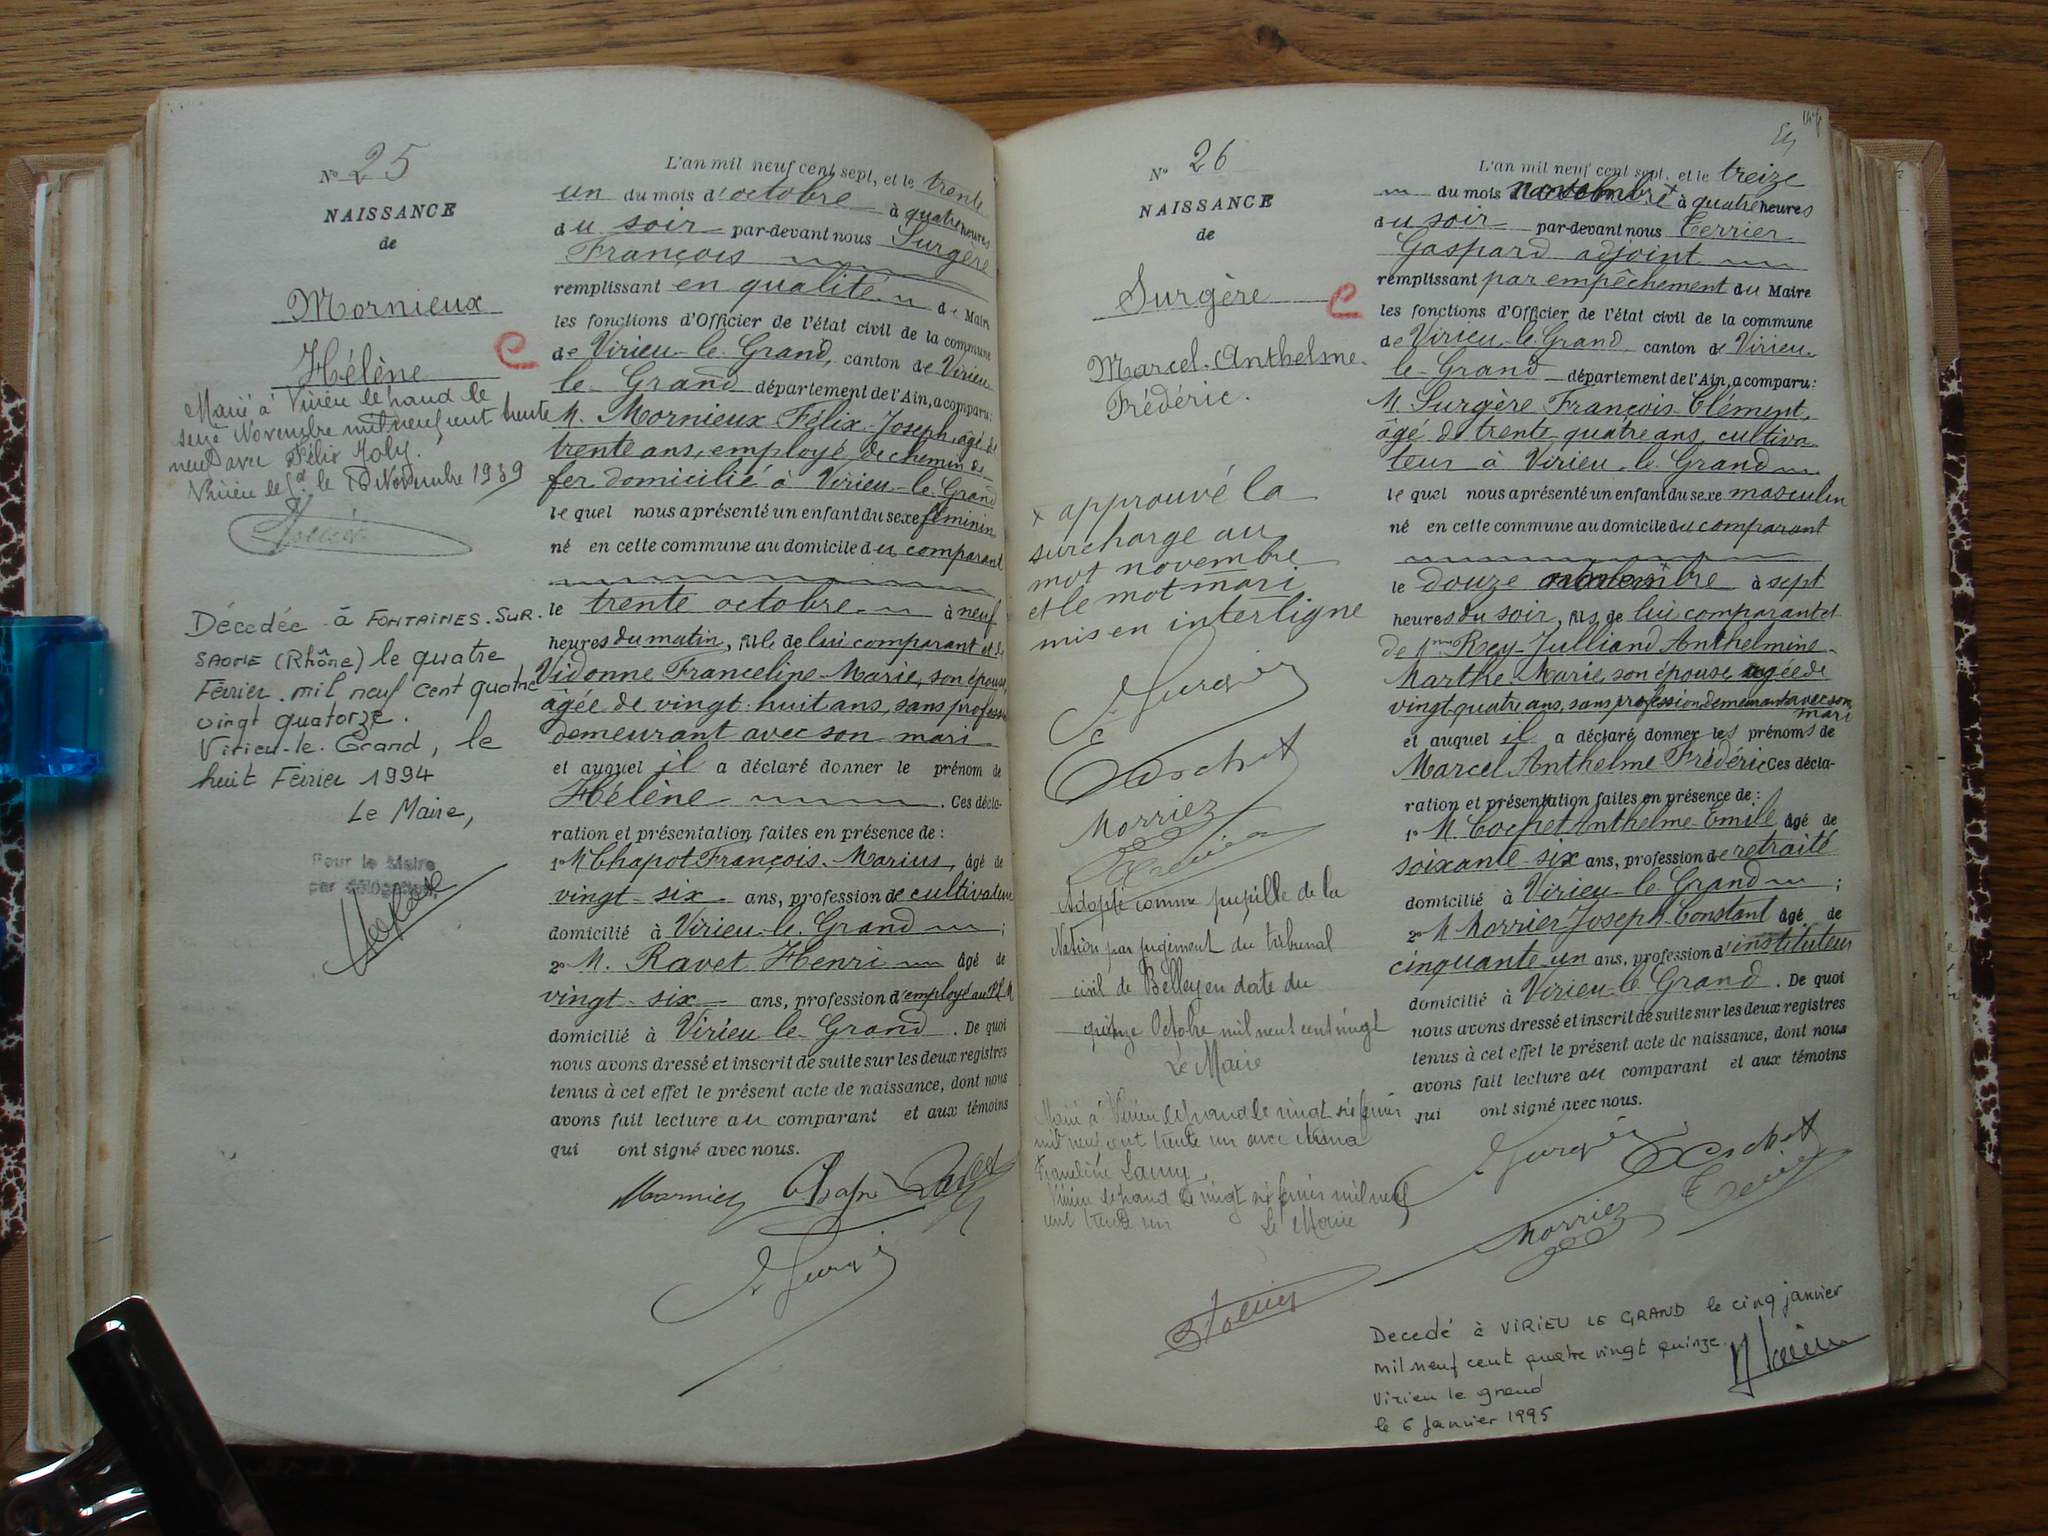 N° 25
NAISSANCE
de
Mornieux
Hélène
Marié à Virieu le grand le
seize Novembre mil neuf cent trente
neuf avec Félix Joly.
Virieu le Gd, le Novembre 1939
Décédée à FONTAINES-SUR-
SAONE (Rhône) le quatre
Février mil neuf cent quatre
vingt quatorze.
Virieu-le-Grand, le
huit Février 1994
Le Maire,
Pour le Maire
par délégation
L'an mil neuf cent sept, et le trente
un du mois d'octobre à quatre heures
du soir par-devant nous Surgère
François
remplissant en qualité de Maire
les fonctions d'Officier de l'état civil de la commune
de Virieu-le-Grand, canton de Virieu
le-Grand département de l'Ain, a comparu:
M. Mornieux Félix-Joseph, âgé de
trente ans, employé de chemin de
fer domicilié à Virieu-le-Grand
lequel nous a présenté un enfant du sexe féminin
né en cette commune au domicile du comparant
le trente octobre à neuf
heures du matin, fille de lui comparant et de
Vidonne Franceline-Marie, son épouse,
âgée de vingt-huit ans, sans profession
demeurant avec son mari
et auquel il a déclaré donner le prénom de
Hélène. Ces décla-
ration et présentation faites en présence de:
1° M Chapot François-Marius, âgé de
vingt-six ans, profession de cultivateur
domicilié à Virieu-le-Grand;
2° M. Ravet Henri âgé de
vingt-six ans, profession d'employé au P.L.M
domicilié à Virieu-le-Grand. De quoi
nous avons dressé et inscrit de suite sur les deux registres
tenus à cet effet le présent acte de naissance, dont nous
avons fait lecture au comparant et aux témoins
qui ont signé avec nous.
Mornieux Chapot Ravet
F. Surgère
N° 26
NAISSANCE
de
Surgère
Marcel-Anthelme-
Frédéric.
x approuvé la
surcharge au
mot novembre
et le mot mari
mis en interligne
F. Surgère
E Cochet
Morrier
Adopté comme pupille de la
Nation par jugement du tribunal
civil de Belley en date du
quinze Octobre mil neuf cent vingt
Le Maire
Marié à Virieu le grand le vingt six
mil neuf cent trente un avec
Virieu le grand le vingt six mil neuf
cent trente un Le Maire
L'an mil neuf cent sept, et le treize
du mois novembre x à quatre heures
du soir par-devant nous Terrier
Gaspard adjoint
remplissant par empêchement du Maire
les fonctions d'Officier de l'état civil de la commune
de Virieu-le-Grand canton de Virieu-
le-Grand département de l'Ain, a comparu:
M. Surgère François-Clément,
âgé de trente-quatre ans, cultiva
teur à Virieu-le-Grand
lequel nous a présenté un enfant du sexe masculin
né en cette commune au domicile du comparant
le douze novembre à sept
heures du soir, fils de lui comparant et
de Mme Rey-Julliand Anthelmine-
Marthe-Marie, son épouse, agée de
vingt-quatre ans, sans profession, demeurant avec son
mari
et auquel il a déclaré donner les prénoms de
Marcel Anthelme Frédéric Ces décla-
ration et présentation faites en présence de:
1° M. Cochet Anthelme-Emile âgé de
soixante-six ans, profession de retraité
domicilié à Virieu-le-Grand;
2° M Morrier Joseph-Constant âgé de
cinquante-un ans, profession d'instituteur
domicilié à Virieu-le-Grand. De quoi
nous avons dressé et inscrit de suite sur les deux registres
tenus à cet effet le présent acte de naissance, dont nous
avons fait lecture au comparant et aux témoins
qui ont signé avec nous.
F. Surgère E Cochet
Morrier
Decedé à VIRIEU LE GRAND le cinq janvier
mil neuf cent quatre vingt quinze.
Virieu le grand
le 6 Janvier 1995